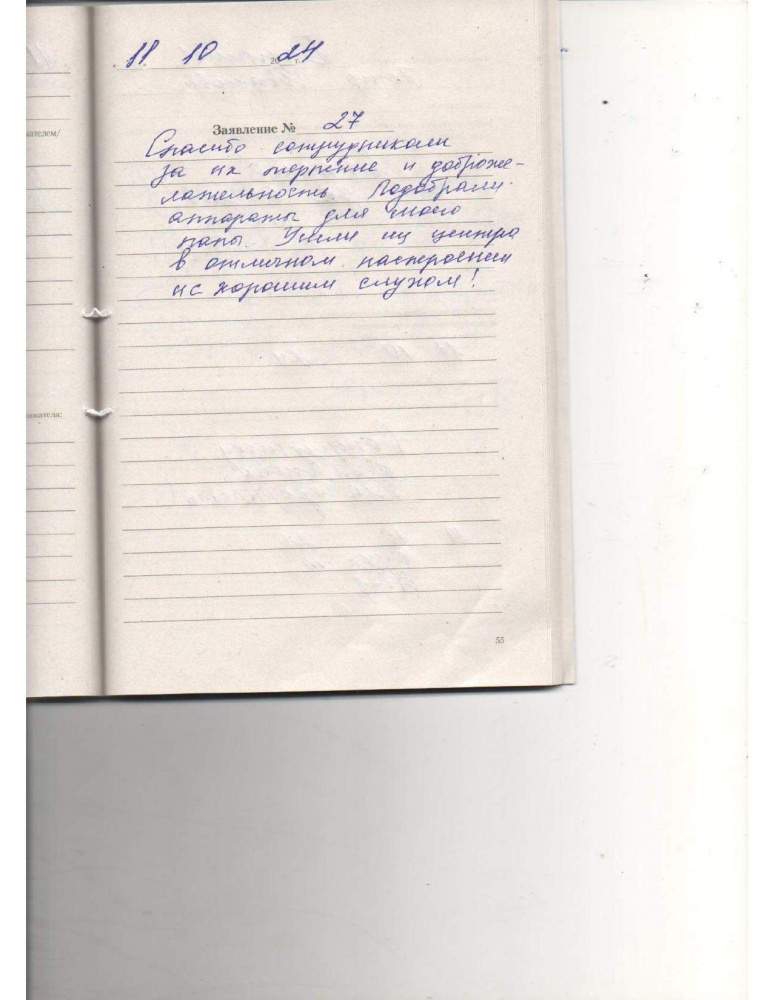 11. 10 2024 г.
Заявление № 27
Спасибо сотрудникам
за их терпение и доброже-
лательность. Подобрали
аппараты для моего
папы. Ушли из центра
в отличном настроении
и с хорошим слухом!
ателем/
ователя:
55